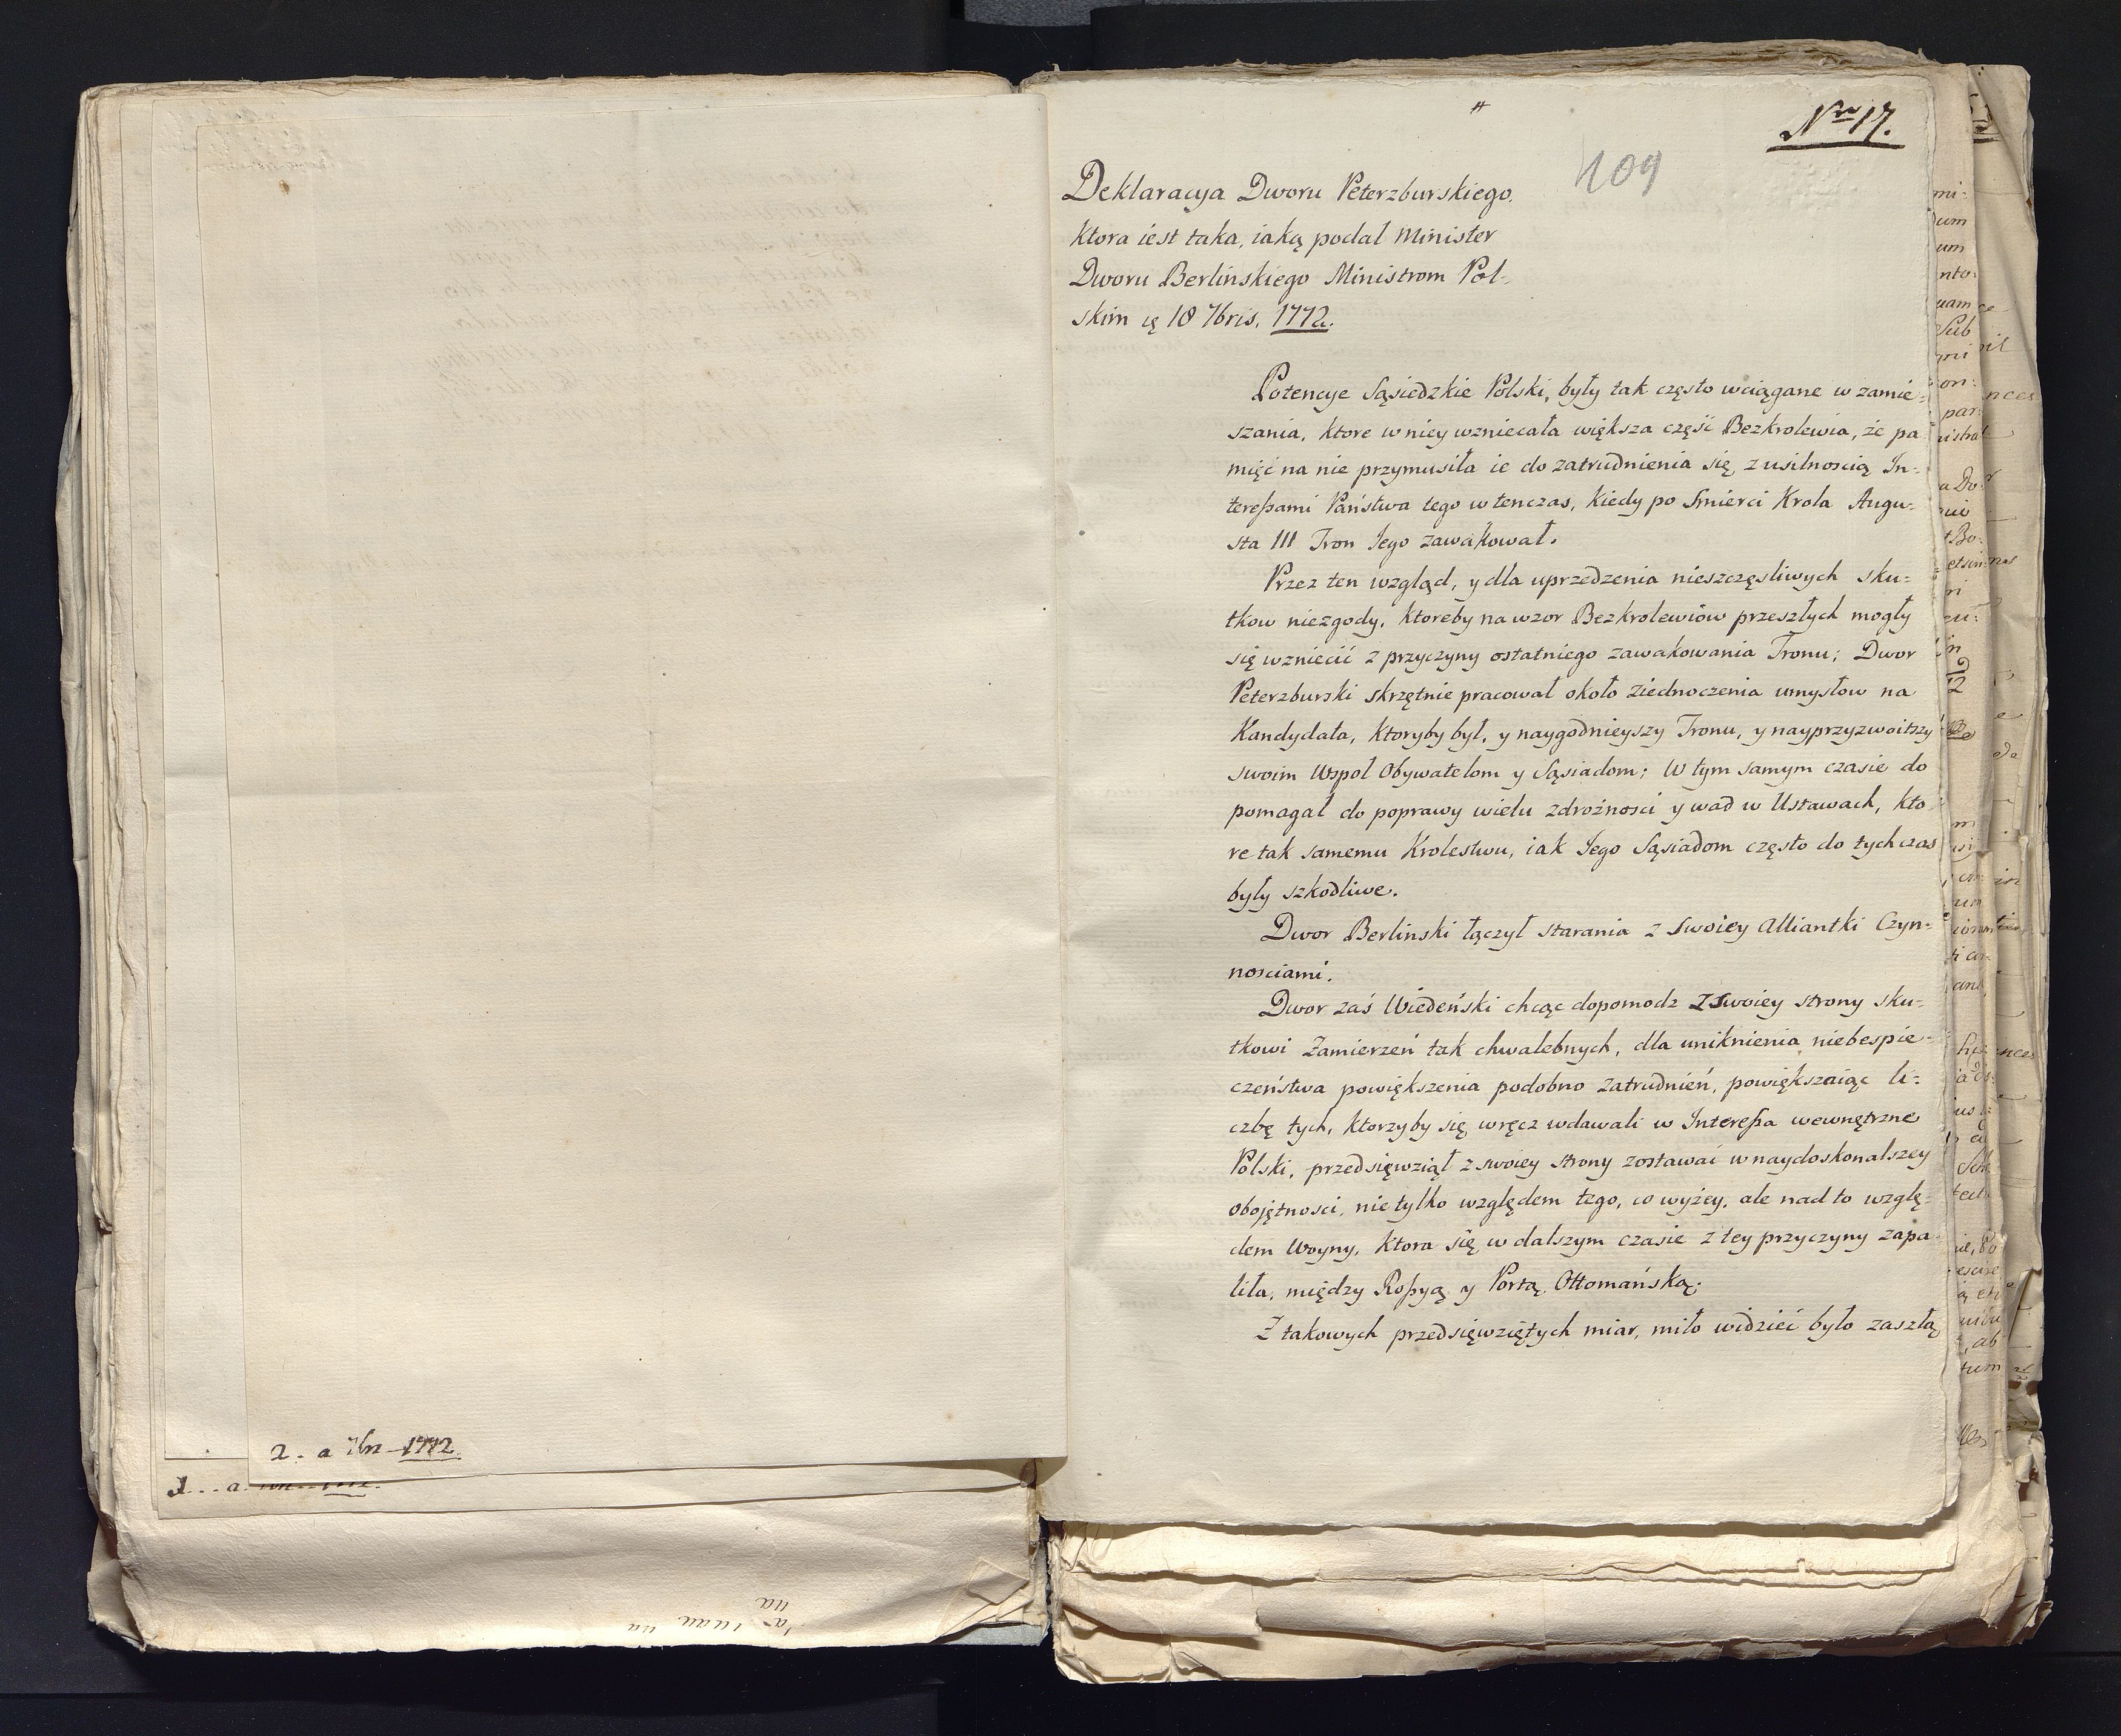 2. a 7br 1772.
Nro 17.
109
Deklaracya Dworu Peterzburskiego,
Ktora iest taka, iaką podał Minister
Dworu Berlinskiego Ministrom Pol-
skim 18 7bris, 1772.
Potencye Sąsiedzkie Polski, były tak często wciągane w zamie-
szania, ktore w niey wzniecała większa część Bezkrolewia, że pa
mięć na nie przymusiła ie do zatrudnienia się z usilnoscią In-
tereßami Państwa tego w tenczas, kiedy po Smierci Krola Augu-
sta III Tron Jego zawakował.
Przez ten wzgląd, y dla uprzedzenia nieszczęsliwych sku-
tkow niezgody, ktoreby na wzor Bezkrolewiów przeszłych mogły
się wzniecić z przyczyny ostatniego zawakowania Tronu; Dwor
Peterzburski skrzętnie pracował około ziednoczenia umysłow na
Kandydata, ktoryby był, y naygodnieyszy Tronu, y nayprzyzwoitszy
swoim Wspoł Obywatelom y Sąsiadom; W tym samym czasie do
pomagał do poprawy wielu zdrożnosci y wad w Ustawach, kto
re tak samemu Krolestwu, iak Jego Sąsiadom często do tych czas
były szkodliwe.
Dwor Berlinski łączył starania z swoiey Alliantki Czyn-
nosciami.
Dwor zaś Wiedeński chcąc dopomodz z swoiey strony sku-
tkowi Zamierzeń tak chwalebnych, dla uniknienia niebespie-
czeństwa powiększenia podobno zatrudnień, powiększaiąc li-
czbę tych, ktorzyby się wręcz wdawali w Intereßa wewnętrzne
Polski, przedsięwziął z swoiey strony zostawać w naydoskonalszey
obojętnosci, nie tylko względem tego, co wyżey, ale nad to wzglę-
dem Woyny, Ktora się w dalszym czasie z tey przyczyny zapa-
liła, między Roßyą y Portą Ottomańską.
Z takowych przedsięwziętych miar, miło widzieć było zaszłą